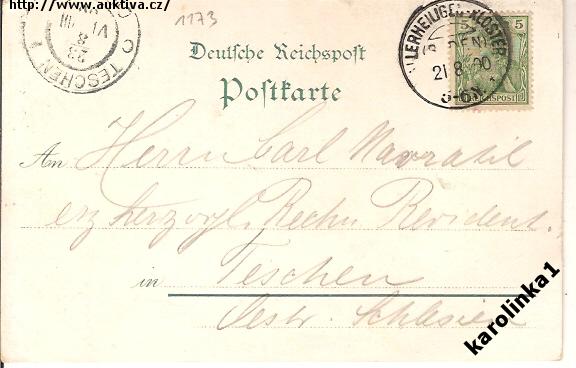 http://www.auktiva.cz/
1173
TESCHEN
23 8
Deutsche Reichspost
Postkarte
LERHEILIGEN KLOSTER
(BADEN)
21 8 00
5-6N.
5
REICHSPOST
An Herrn Carl Navratil
erzherzogl. Rechn Revident.
in Teschen
Oestr. Schlesien
karolinka1